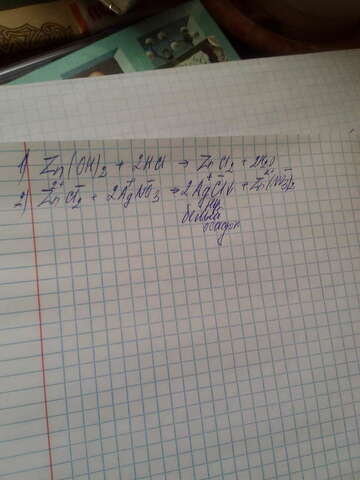 1) Zn(OH)2 + 2HCl → ZnCl2 + 2H2O
2) ZnCl2 + 2AgNO3 → 2AgCl↓ + Zn(NO3)2
белый
осадок